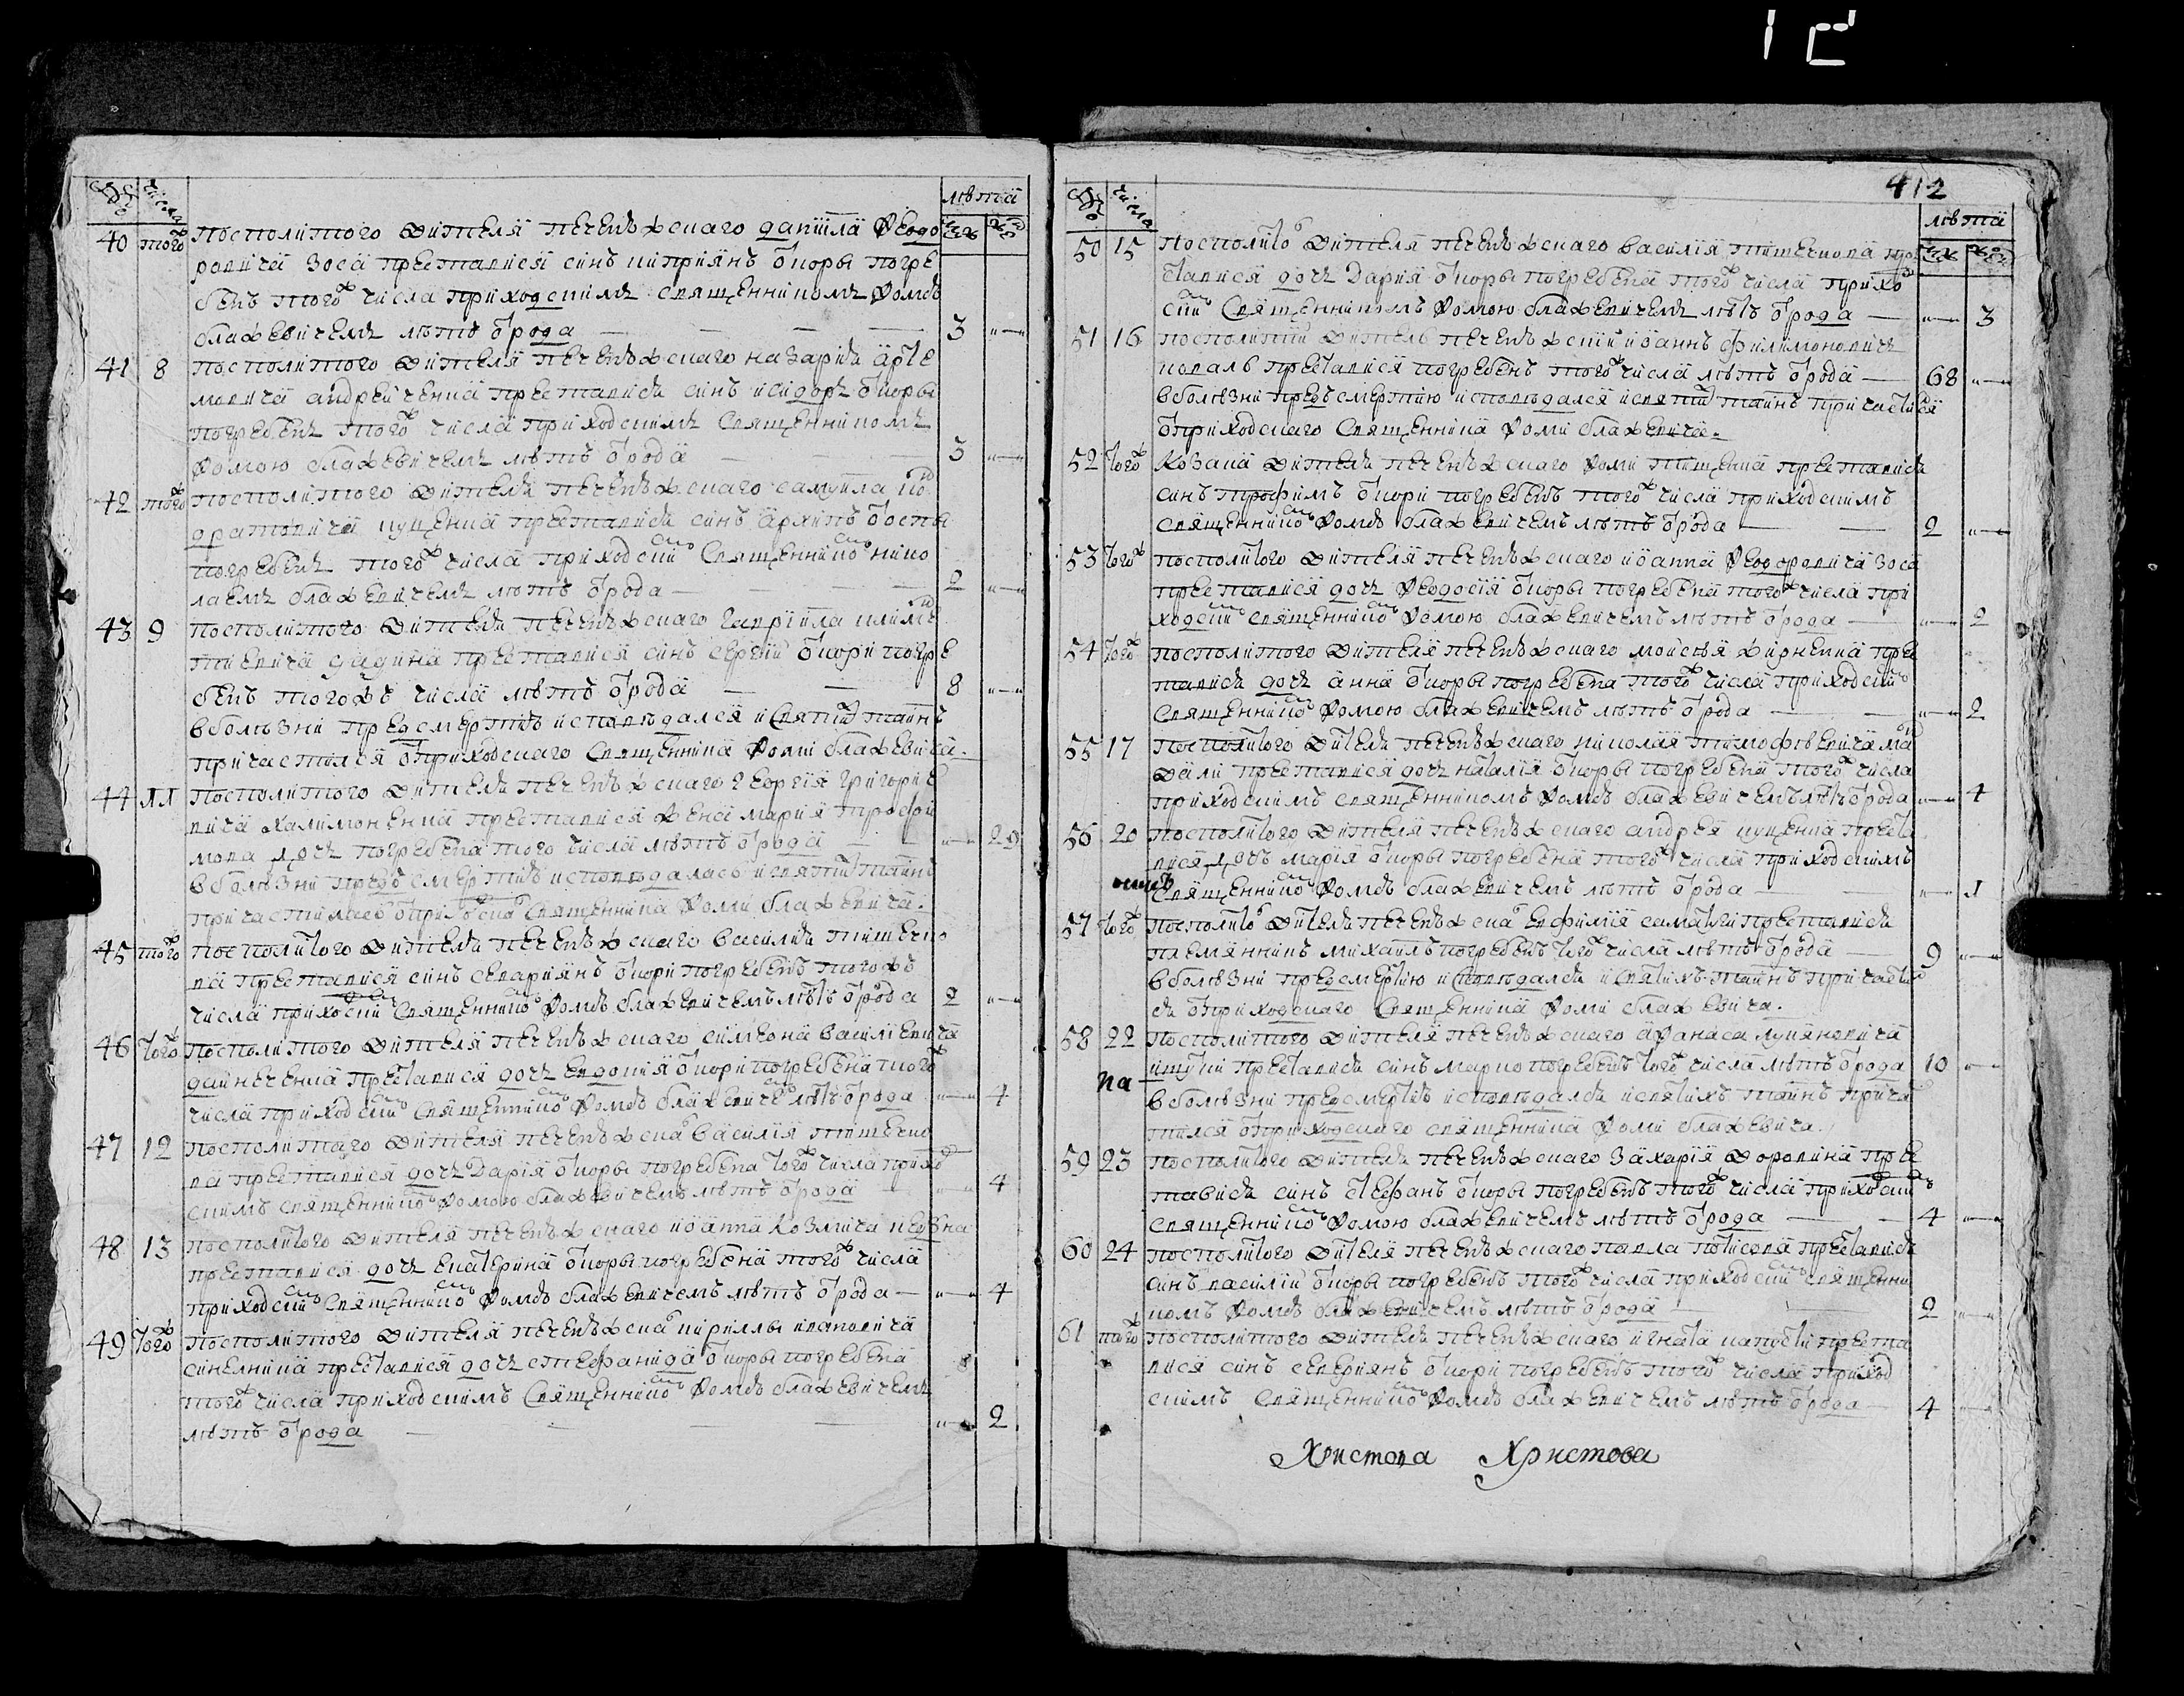 412
№ числа лѣта
40 тогож посполитого жителя печенѣжскаго даниила Феодо
ровича Зоса преставися синъ киприянъ ѿкоры погре
бенъ тогож числа приходскимъ священникомъ Фомѣю
блажевичемъ лѣтъ ѿрода 3
41 8 посполитого жителя печенѣжскаго назария арте
мовича андрейченка преставися синъ исидоръ ѿкоры
погребенъ тогож числа приходскимъ священникомъ
Фомою блажевичемъ лѣтъ ѿрода 3
42 тогож посполитого жителя печенѣжскаго самуила ко
дратовича куценка преставися синъ архипъ ѿоспы
погребенъ тогож числа приходским священником нико
лаемъ блажевичемъ лѣтъ ѿрода 2
43 9 посполитого жителя печенѣжскаго гавриила климе
тиевича преставися синъ сергий ѿкори погре
бенъ тогожъ числа лѣтъ ѿрода 8
вболѣзни предсмертию исповѣдался исвятих таинъ
причастился ѿприходскаго священника Фоми блажевича.
44 11 посполитого жителя печенѣжскаго георгия григорие
вича халимоненка преставися жена мария трофи
мова дочъ погребена того числа лѣтъ ѿрода 29
вболѣзни предъ смертию исповѣдалась исвятих таинъ
причастилась ѿприходскаго священника Фоми блажевича.
45 тогож посполитого жителя печенѣжскаго василия тищенко
ва преставися синъ севариянъ ѿкори погребенъ тогожъ
числа приходским священником Фомѣю блажевичемъ лѣтъ ѿрода 2
46 тогож посполитого жителя печенѣжскаго симеона василиевича
дайнеченка преставися дочъ евдокия ѿкори погребена тогож
числа приходским священником Фомѣю блажевичем лѣтъ ѿрода 4
47 12 посполитаго жителя печенѣжскаго василия тищенко
ва преставися дочъ Дария ѿкоры погребена тогож числа приход
скимъ священником Фомою блажевичемъ лѣтъ ѿрода 4
48 13 посполитого жителя печенѣжскаго иоанна козмича
преставися дочъ екатерина ѿкоры погребена тогож числа
приходским священником Фомѣю блажевичемъ лѣтъ ѿрода 4
49 тогож посполитого жителя печенѣжскаго кириллы ивановича
синелника преставися дочъ стефанида ѿкоры погребена
тогож числа приходскимъ священником Фомѣю блажевичемъ
лѣтъ ѿрода 2
№ числа лѣта
50 15 посполитого жителя печенѣжскаго василия тищенкова пре
ставися дочъ Дария ѿкоры погребена тогож числа приход
ским священникомъ Фомою блажевичемъ лѣтъ ѿрода 3
51 16 посполитий житель печенѣжский иоаннъ филимоновичъ
коваль преставися погребенъ тогож числа лѣтъ ѿрода 68
вболѣзни предъ смертию исповѣдался исвятих таинъ причастися
ѿприходскаго священника Фоми блажевича.
52 тогож козака жителя печенѣжскаго Фоми тищенка преставися
синъ трофимъ ѿкори погребенъ тогож числа приходскимъ
священником Фомѣю блажевичемъ лѣтъ ѿрода 2
53 тогож посполитого жителя печенѣжскаго иоанна Феодоровича Зоса
преставися дочъ Феодосия ѿкоры погребена тогож числа при
ходским священником Фомою блажевичемъ лѣтъ ѿрода 2
54 тогож посполитого жителя печенѣжскаго мойсѣя жирненка пре
ставися дочъ анна ѿкоры погребена тогож числа приходским
священником Фомою блажевичемъ лѣтъ ѿрода 2
55 17 посполитого жителя печенѣжскаго николая тимофѣевича
преставися дочъ наталия ѿкоры погребена тогож числа
приходскимъ священникомъ Фомѣю блажевичемъ лѣтъ ѿрода 4
56 20 посполитого жителя печенѣжскаго андрея куценка преста
вися дочъ мария ѿкоры погребена тогож числа приходскимъ
священником Фомѣю блажевичемъ лѣтъ ѿрода 1
57 тогож посполитого жителя печенѣжскаго евфимия преставися
племянникъ михаилъ погребенъ тогож числа лѣтъ ѿрода 9
вболѣзни предсмертию исповѣдался исвятихъ таинъ причастил
ся ѿприходскаго священника Фоми блажевича.
58 22 посполитого жителя печенѣжскаго афанаса лукяновича
преставися синъ марко погребенъ тогож числа лѣтъ ѿрода 10
вболѣзни предсмертию исповѣдался исвятихъ таинъ прича
тился ѿприходскаго священника Фоми блажевича.
59 23 посполитого жителя печенѣжскаго захария пре
ставися синъ стефанъ ѿкоры погребенъ тогож числа приходским
священником Фомою блажевичемъ лѣтъ ѿрода 4
60 24 посполитого жителя печенѣжскаго павла преставися
синъ василий ѿкоры погребенъ тогож числа приходским священни
комъ Фомѣю блажевичемъ лѣтъ ѿрода 2
61 тогож посполитого жителя печенѣжскаго игната капусти преста
вися синъ севериянъ ѿкори погребенъ тогож числа приход
скимъ священником Фомѣю блажевичемъ лѣтъ ѿрода 4
Христова Христова